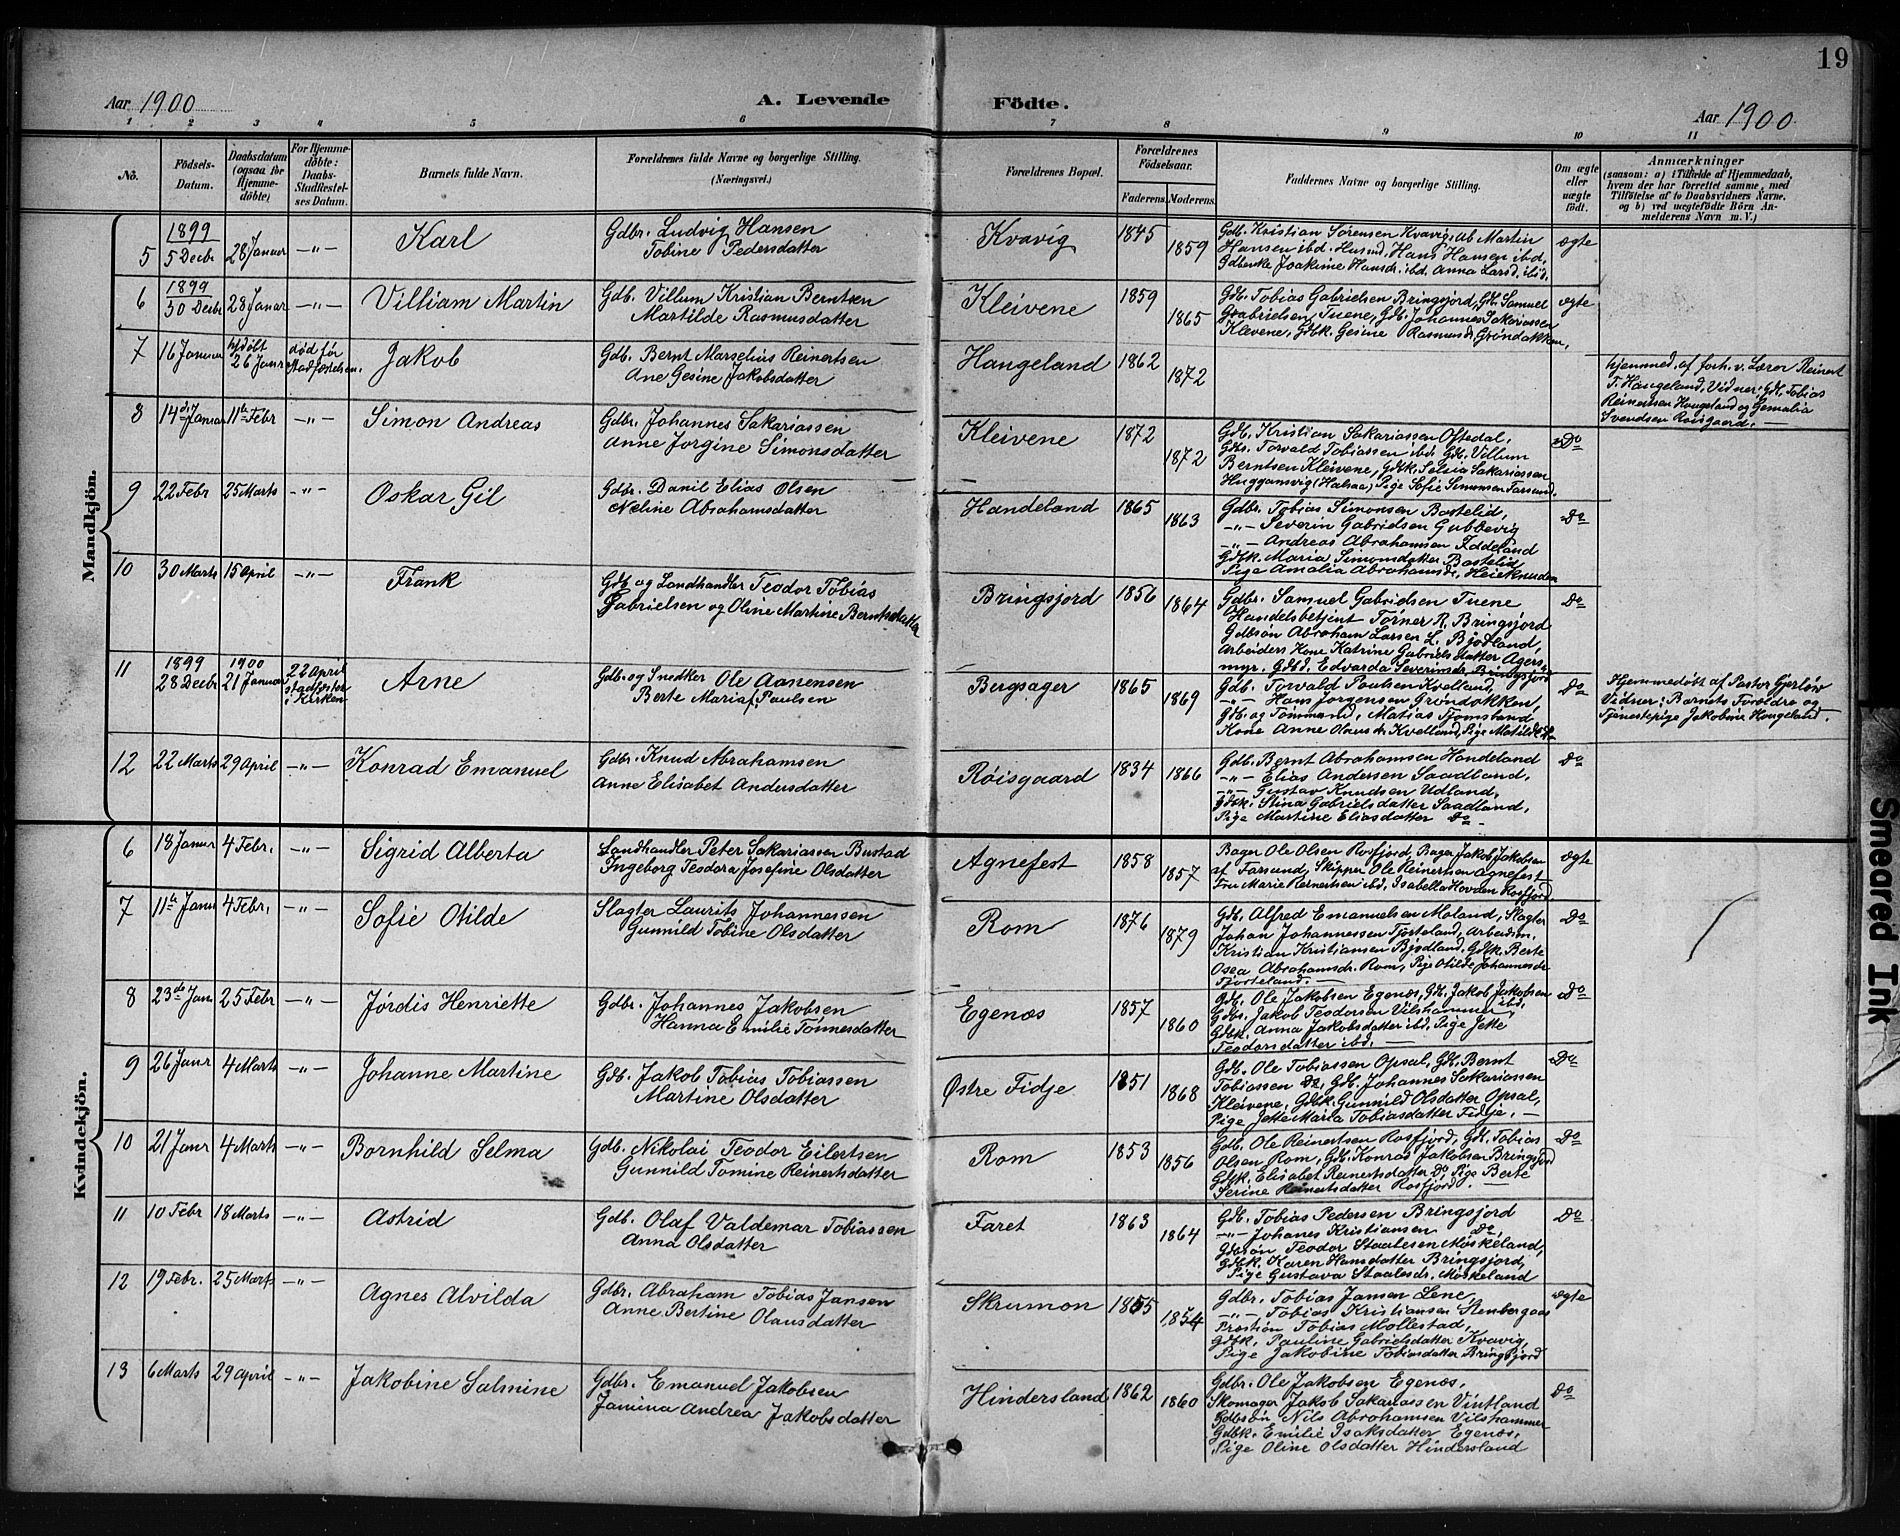 19
Aar 1900
A. Levende Födte.
Aar 1900
1 2 3 4 5 6 7 8 9 10 11
No.
Födsels-Datum.
Daabsdatum (ogsaa for Hjemme-döbte)
For Hjemme-döbte: Daabs-Stadfæstel-ses Datum.
Barnets fulde Navn.
Forældrenes fulde Navne og borgerlige Stilling.
(Næringsvei.)
Forældrenes Bopæl.
Forældrenes Födselsaar.
Faderens. Moderens.
Faddernes Navne og borgerlige Stilling.
Om ægte eller uægte födt.
Anmærkninger
(saasom: a) i Tilfælde af Hjemmedaab,
hvem der har forrettet samme, med
Tilföielse af to Daabsvidners Navne.
og b) ved uægtefödte Börn An-
melderens Navn m. V.)
Mandkjön.
5 1899 5 Decbr 28 Januar -"- Karl
Gdbr. Ludvig Hansen
Tobine Pedersdatter
Kvavig 1845 1859
Gdb. Kristian Sörensen Kvavig, ab Martin
Hansen ibd. Husmd. Hans Hansen ibd.
Gdbenke Joakime Hansdr. ibd. Anna Larsd. ibid.
ægte
6 1899 30 Decbr 28 Januar -"- Villiam Martin
Gdb. Villum Kristian Berntsen
Martilde Rasmusdatter
Kleivene 1859 1865
Gdb. Tobias Gabrielsen Bringsjord, Gdb. Samuel
Gabrielsen Tuene, Gdb. Johannes Sakariassen
Kleivene, Gdbk. Gesine Rasmusdr. Gröndokken.
ægte
7 16 Januar hjdöbt 26 Janr död för Stadfæstelsen. Jakob
Gdb. Bernt Marselius Reinertsen
Ane Gesine Jakobsdatter
Haugeland 1862 1872
hjemmed. af forh. v. Lærer Reinert
T. Haugeland, Vidner: Gdb. Tobias
Reinertsen Haugeland og Gemalia
Svendsen Röisgaard. —
8 14de Januar 11te Febr -"- Simon Andreas
Gdbr. Johannes Sakariassen
Anne Jorgine Simonsdatter
Kleivene 1872 1872
Gdb. Kristian Sakariassen Oftedal,
Gdbs. Torvald Tobiassen ibd. Gdb. Villum
Berntsen Kleivene, Gdbk. Selsia Sakariassen
Huggamsvig (Halsaa) Pige Sofie Simonsen Farsund.
Do
9 22 Febr 25 Marts -"- Oskar Gil
Gdbr. Danil Elias Olsen
Neline Abrahamsdatter
Handeland 1865 1863
Gdbr. Tobias Simonsen Bastelid,
-"- Severin Gabrielsen Gubbevig
-"- Andreas Abrahamsen Iddeland
Gdbk. Maria Simonsdatter Bastelid
Pige Amalia Abrahamsdr. Heieknuden
Do
10 30 Marts 15 April -"- Frank
Gdb og Landhandler Teodor Tobias
Gabrielsen og Oline Martine Berntsdatter
Bringsjord 1856 1864
Gdbr. Samuel Gabrielsen Tuene
Handelsbetjent Torner R. Bringsjord
Gdbsön Abraham Larsen L. Bjödland,
Arbeiders Kone Katrine Gabrielsdatter Agers-
myr, Gdbd. Edvarda Severinsdr. Bringsjord
Do
11 1899 28 Decbr 1900 21 Januar 22 April stadfæstet i Kirken Arne
Gdb. og Snedker Ole Aanensen
Berte Maria f. Paulsen
Bergsager 1865 1869
Gdb. Torvald Paulsen Kvelland,
-"- Hans Jörgensen Gröndokken,
Gdb. og Tömmermd. Matias Tjomsland
Kone Anne Olausdr. Kvelland, Pige Matilde
Do
Hjemmedöbt af Pastor Gjerlöw
Vidner: Barnets Forældre og
Tjenestepige Jakobine Haugeland.
12 22 Marts 29 April -"- Konrad Emanuel
Gdbr. Knud Abrahamsen
Anne Elisabet Andersdatter
Röisgaard 1834 1866
Gdb. Bernt Abrahamsen Handeland
-"- Elias Andersen Saadland,
-"- Gustav Knudsen Udland,
Gdbk. Stina Gabrielsdatter Saadland,
Pige Martine Eliasdatter Do
Do
Kvindekjön.
6 18 Januar 4 Febr. -"- Sigrid Alberta
Landhandler Peter Sakariassen Bustad
Ingeborg Teodora Josefine Olsdatter
Agnefest 1858 1857
Bager Ole Olsen Rosfjord, Bager Jakob Jakobsen
af Farsund, Skipper Ole Reinertsen Agnefest
Fru Marie Reinertsen ibd, Isabella Hovden Rosfjord
ægte
7 11te Janr 4 Febr. -"- Sofie Otilde
Slagter Laurits Johannessen
Gunnild Tobine Olsdatter
Rom 1876 1879
Gdb. Alfred Emanuelsen Moland, Slagter
Johan Johannessen Tjorteland, Arbeidsm.
Kristian Kristiansen Bjödland, Gdbk. Berte
Osea Abrahamsdr. Rom, Pige Otilde Johannesdr
Tjorteland. —
Do
8 23de Jan 25 Febr -"- Jördis Henriette
Gdbr. Johannes Jakobsen
Hanna Emilie Tönnesdatter
Egenæs 1857 1860
Gdb. Ole Jakobsen Egenæs, Gdb. Jakob Jakobsen ibd.
Gdbs. Jakob Teodorsen Vilshammer,
Gdbk. Anna Jakobsdatter ibd, Pige Jette
Teodorsdatter ibd. —
Do
9 26 Janr 4 Marts -"- Johanne Martine
Gdb. Jakob Tobias Tobiassen
Martine Olsdatter
Østre Fidje 1851 1868
Gdb. Ole Tobiassen Opsal, Gdb. Bernt
Tobiassen Do, Gdb. Johannes Sakariassen
Kleivene, Gdbk. Gunnild Olsdatter Opsal,
Pige Jette Maria Tobiasdatter Fidje. —
Do
10 21 Janr 4 Marts -"- Bornhild Selma
Gdb. Nikolai Teodor Eilertsen
Gunnild Tomine Reinertsdatter
Rom 1853 1856
Gdb. Ole Reinertsen Rosfjord, Gdb. Tobias
Olsen Rom, Gdb. Konrad Jakobsen Bringsjord
Gdbk. Elisabet Reinertsdatter Do, Pige Berte
Serine Reinertsdatter Rosfjord. —
Do
11 10 Febr 18 Marts -"- Astrid
Gdb. Olaf Valdemar Tobiassen
Anna Olsdatter
Faret 1863 1864
Gdb. Tobias Pedersen Bringsjord
-"- Johanes Kristiansen Do,
Gdbsön Teodor Staalesen Möskeland,
Gdbk. Karen Hansdatter Bringsjord,
Pige Gustava Staalesdr. Möskeland
Do
12 19 Febr. 25 Marts -"- Agnes Alvilda
Gdbr. Abraham Tobias Jansen
Anne Bertine Olausdatter
Skrumon 1855 1854
Gdbr. Tobias Jansen Lene,
-"- Tobias Kristiansen Stenbergaas
Tobias Mollestad,
Gdbk. Pauline Gabrielsdatter Kvavig,
Pige Jakobine Tobiasdatter Bringsjord
ægte
13 6 Marts 29 April -"- Jakobine Salmine
Gdbr. Emanuel Jakobsen
Jamina Andrea Jakobsdatter
Hindersland 1862 1860
Gdbr. Ole Jakobsen Egenæs,
Skomager Jakob Sakariassen Vintland
Gdbsön Nils Abrahamsen Vilshammer
Gdbk. Emilie Isaksdatter Egenæs,
Pige Oline Olsdatter Hindersland
Do
Smeared Ink